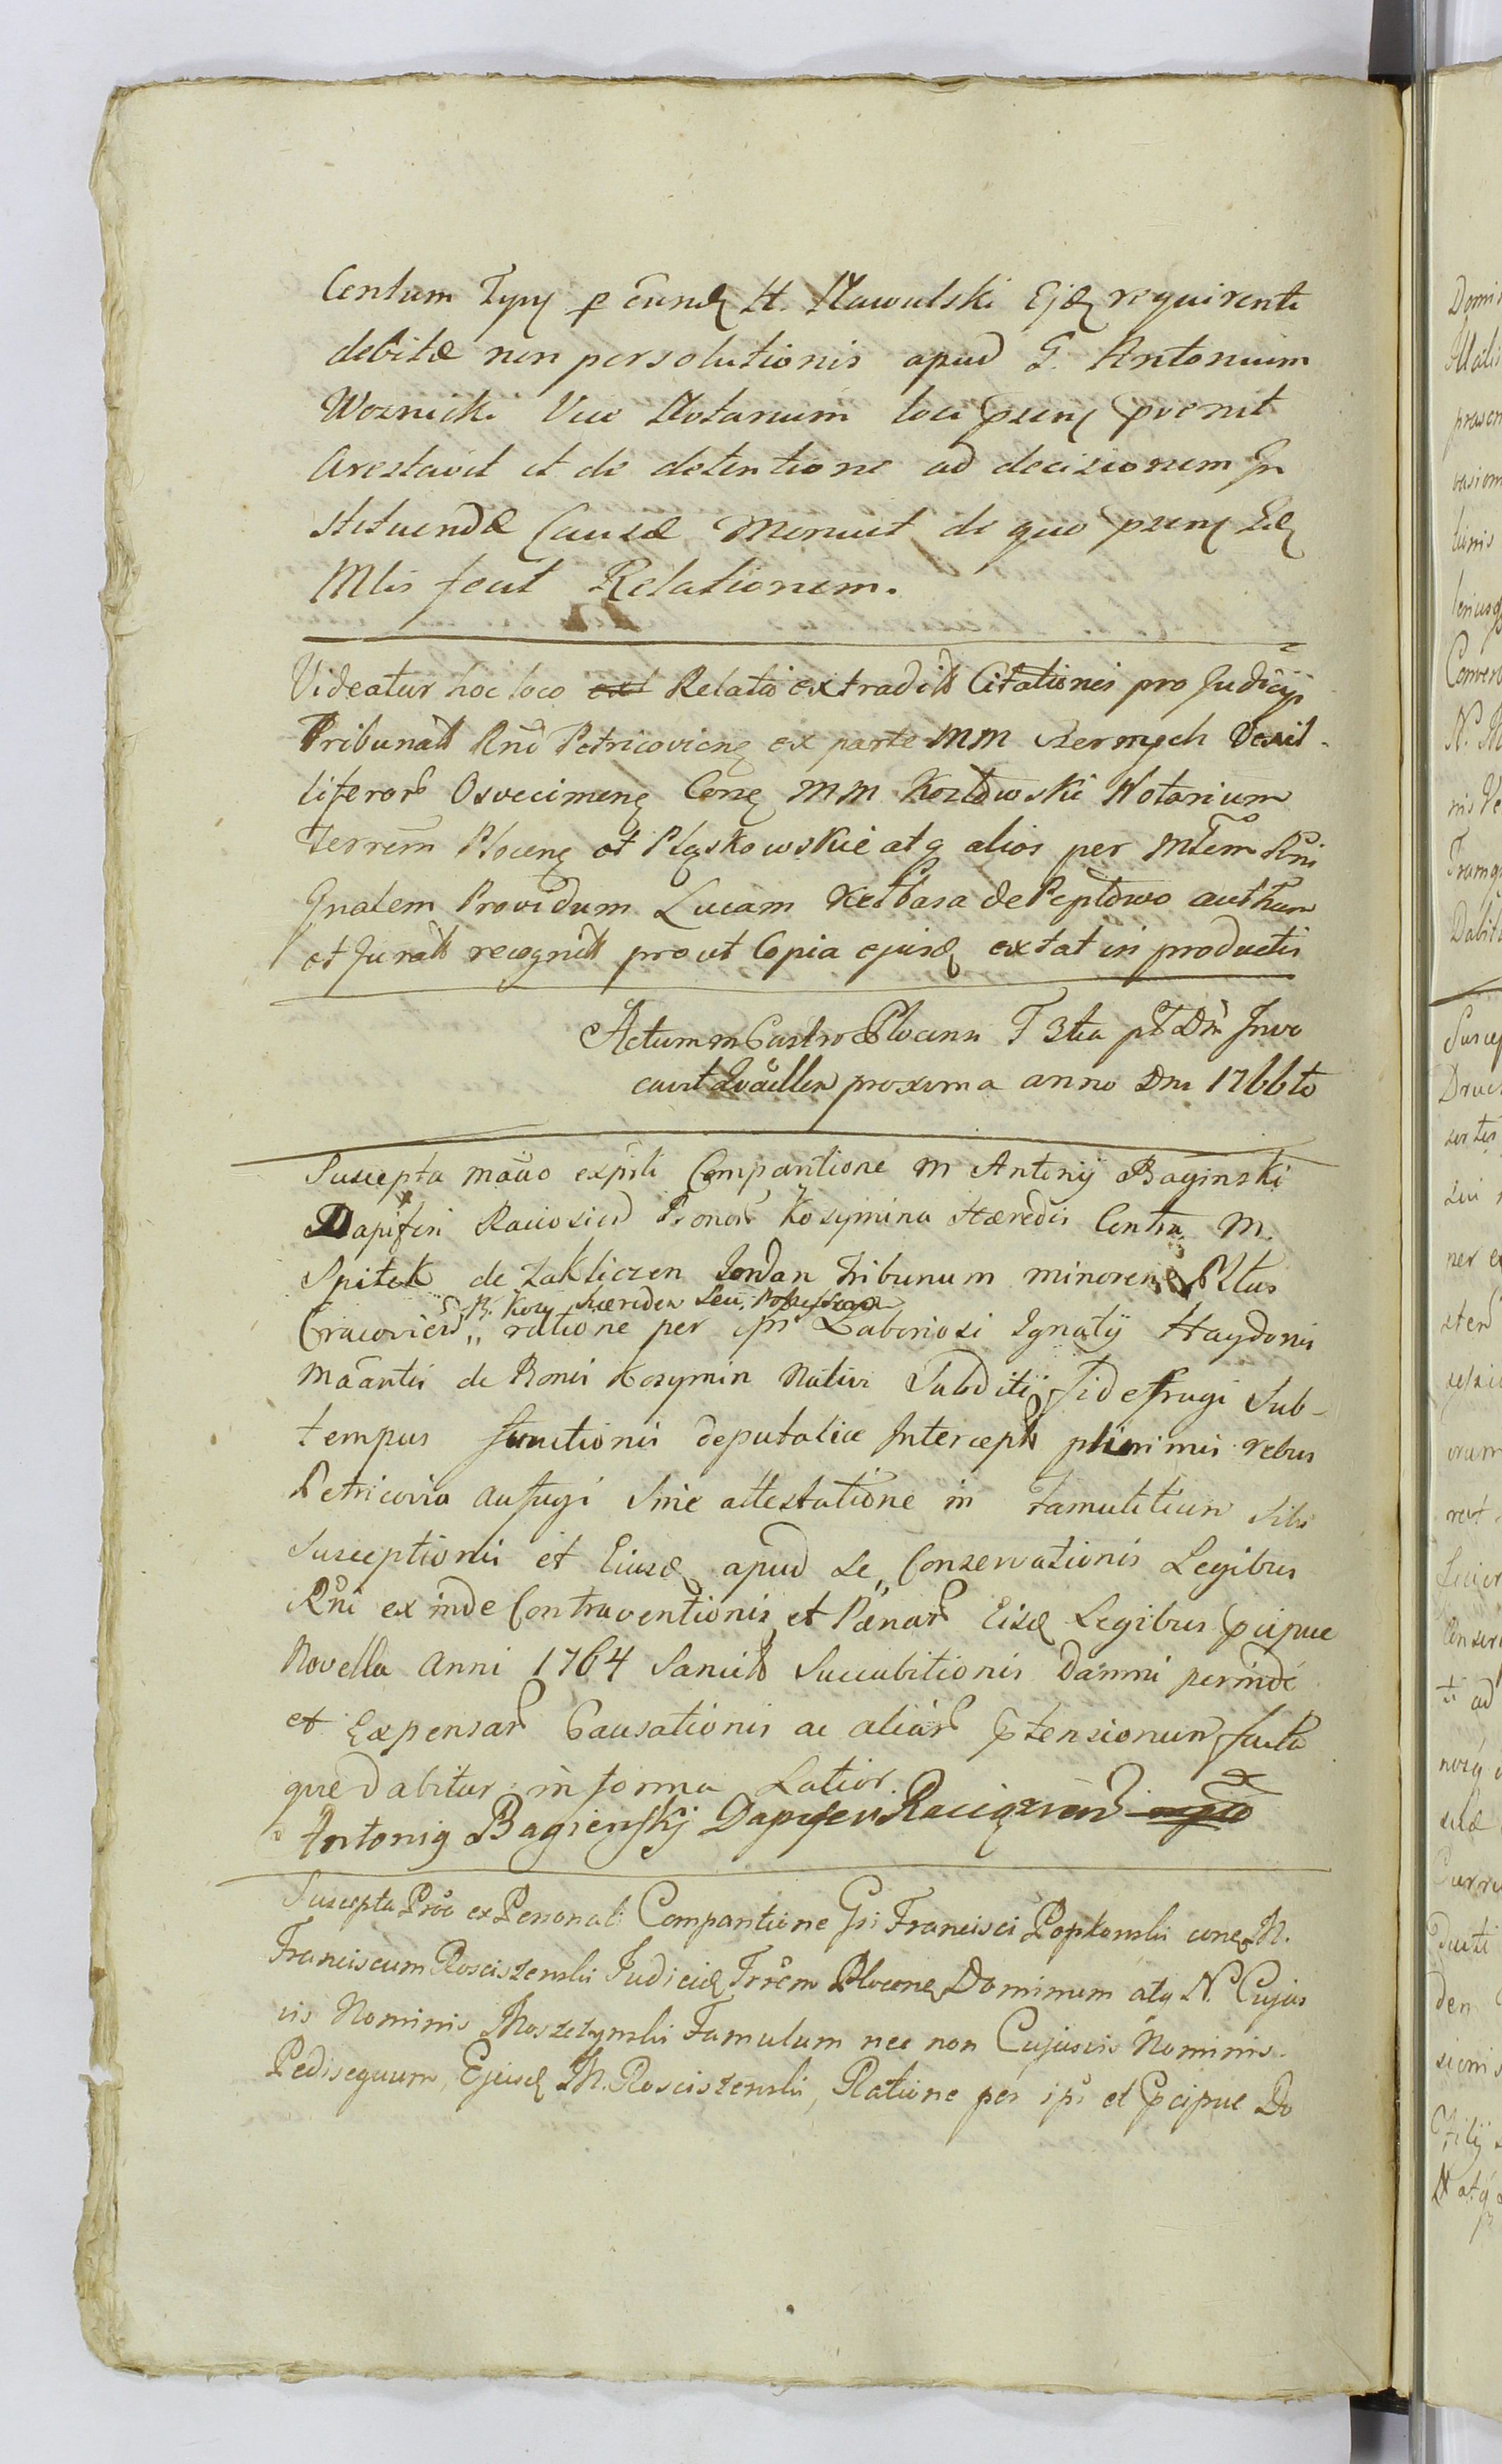 Centum Typ p eund H. Nawulski Ejd requirenti
debitæ non persolutionis apud G. Antonium
Woznicki Vice Notarium loci prm prvenit
Arestavit et de detentione ad decisionem In
stituendæ Causæ Monuit de quo prm Id
Mlis fecit Relationem.
Videatur hoc loco Relatio extradit Citationis pro Judicijs
Tribunalt Rnd Petricovien ex parte MM Vexil-
liferor Osvecimens Cons MM Kozłowski Notarium
Terrem Plocens et Pląskowskie atq alios per Mlem Rni
Gnalem Providum Lucam Kiełbasa de Pepłowo authen
et Jurat recognit prout Copia ejusd extat in productis
Actum in Castro Plocensi F 3tia pt Dni Invo
cavit proxima anno Dni 1766to
Suscepta mano Comparitione M Antonij Baginski
Dapiferi Bonor Kozymina Hæredis Contra M.
Spitek de Zakliczen Jordan Tribunum minorem Pltus
B. Kozy Hæredem Seu Possessorem
Cracovien ratione per ips Laboriosi Ignatij Haydonis
de Bonis Kozymin Nativi Subditi fidefragi Sub-
tempus functionis deputatiæ Intercept plurimis rebus
Petricovia aufugi Sine attestatione in Famulitium Sibi
Susceptionis et Eiusd apud se Conservationis Legibus
Rni exinde Contraventionis et Pænar Eisd Legibus pcipue
Novella Anni 1764 Sancit Succubitionis Damni perinde
et Expensar Causationis ac aliar ptensionum facta
que dabitur in forma Latior.
Antonig Bagienskj Dapifer Raciązien
Suscepta Prov ex Personali Comparitione Gsi Francisci Popłowski cons M.
Franciscum Rosciszewski Judicid Trrem Plocens Dominum atq N. Cujus
vis Nominis Moszczynski Famulum nec non Cujusvis Nominis
Pedisequum, Ejusd M. Rosciszewski, Ratione per ips et pcipue Do